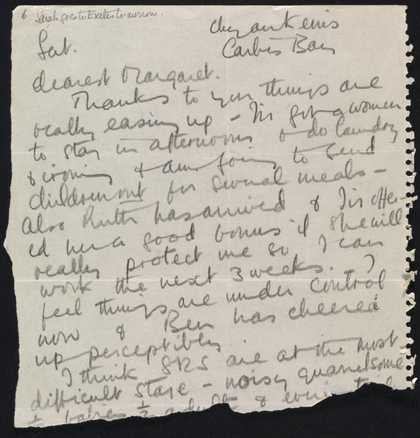 6 Sarah goes to Exeter tomorrow.
Chy an Kerris
Sat. Carbis Bay
dearest Margaret.
Thanks to you things are
really easing up – I've got a woman
to stay in afternoons & do laundry
& ironing & am going to send
children out for several meals –
Also Ruth has arrived & I've offer-
ed her a good bonus if she will
really protect me so I can
work the next 3 weeks. I
feel things are under control
now & Ben has cheered
up perceptibly
I think SRS are at the most
difficult stage – noisy quarrelsome